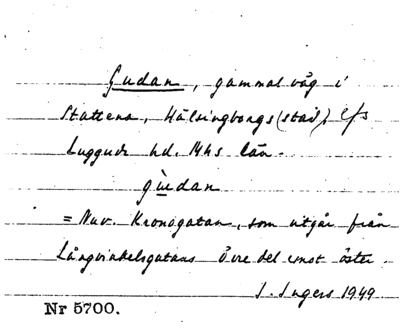 Gudan, gammal väg i
Stattena, Hälsingborgs (stad), L/s
Luggude hd. M-hs län.
gùdan
= Nuv. Kronogatan, som utgår från
Långvinkelsgatans övre del emot öster.
I. Ingers 1949
Nr 5700.